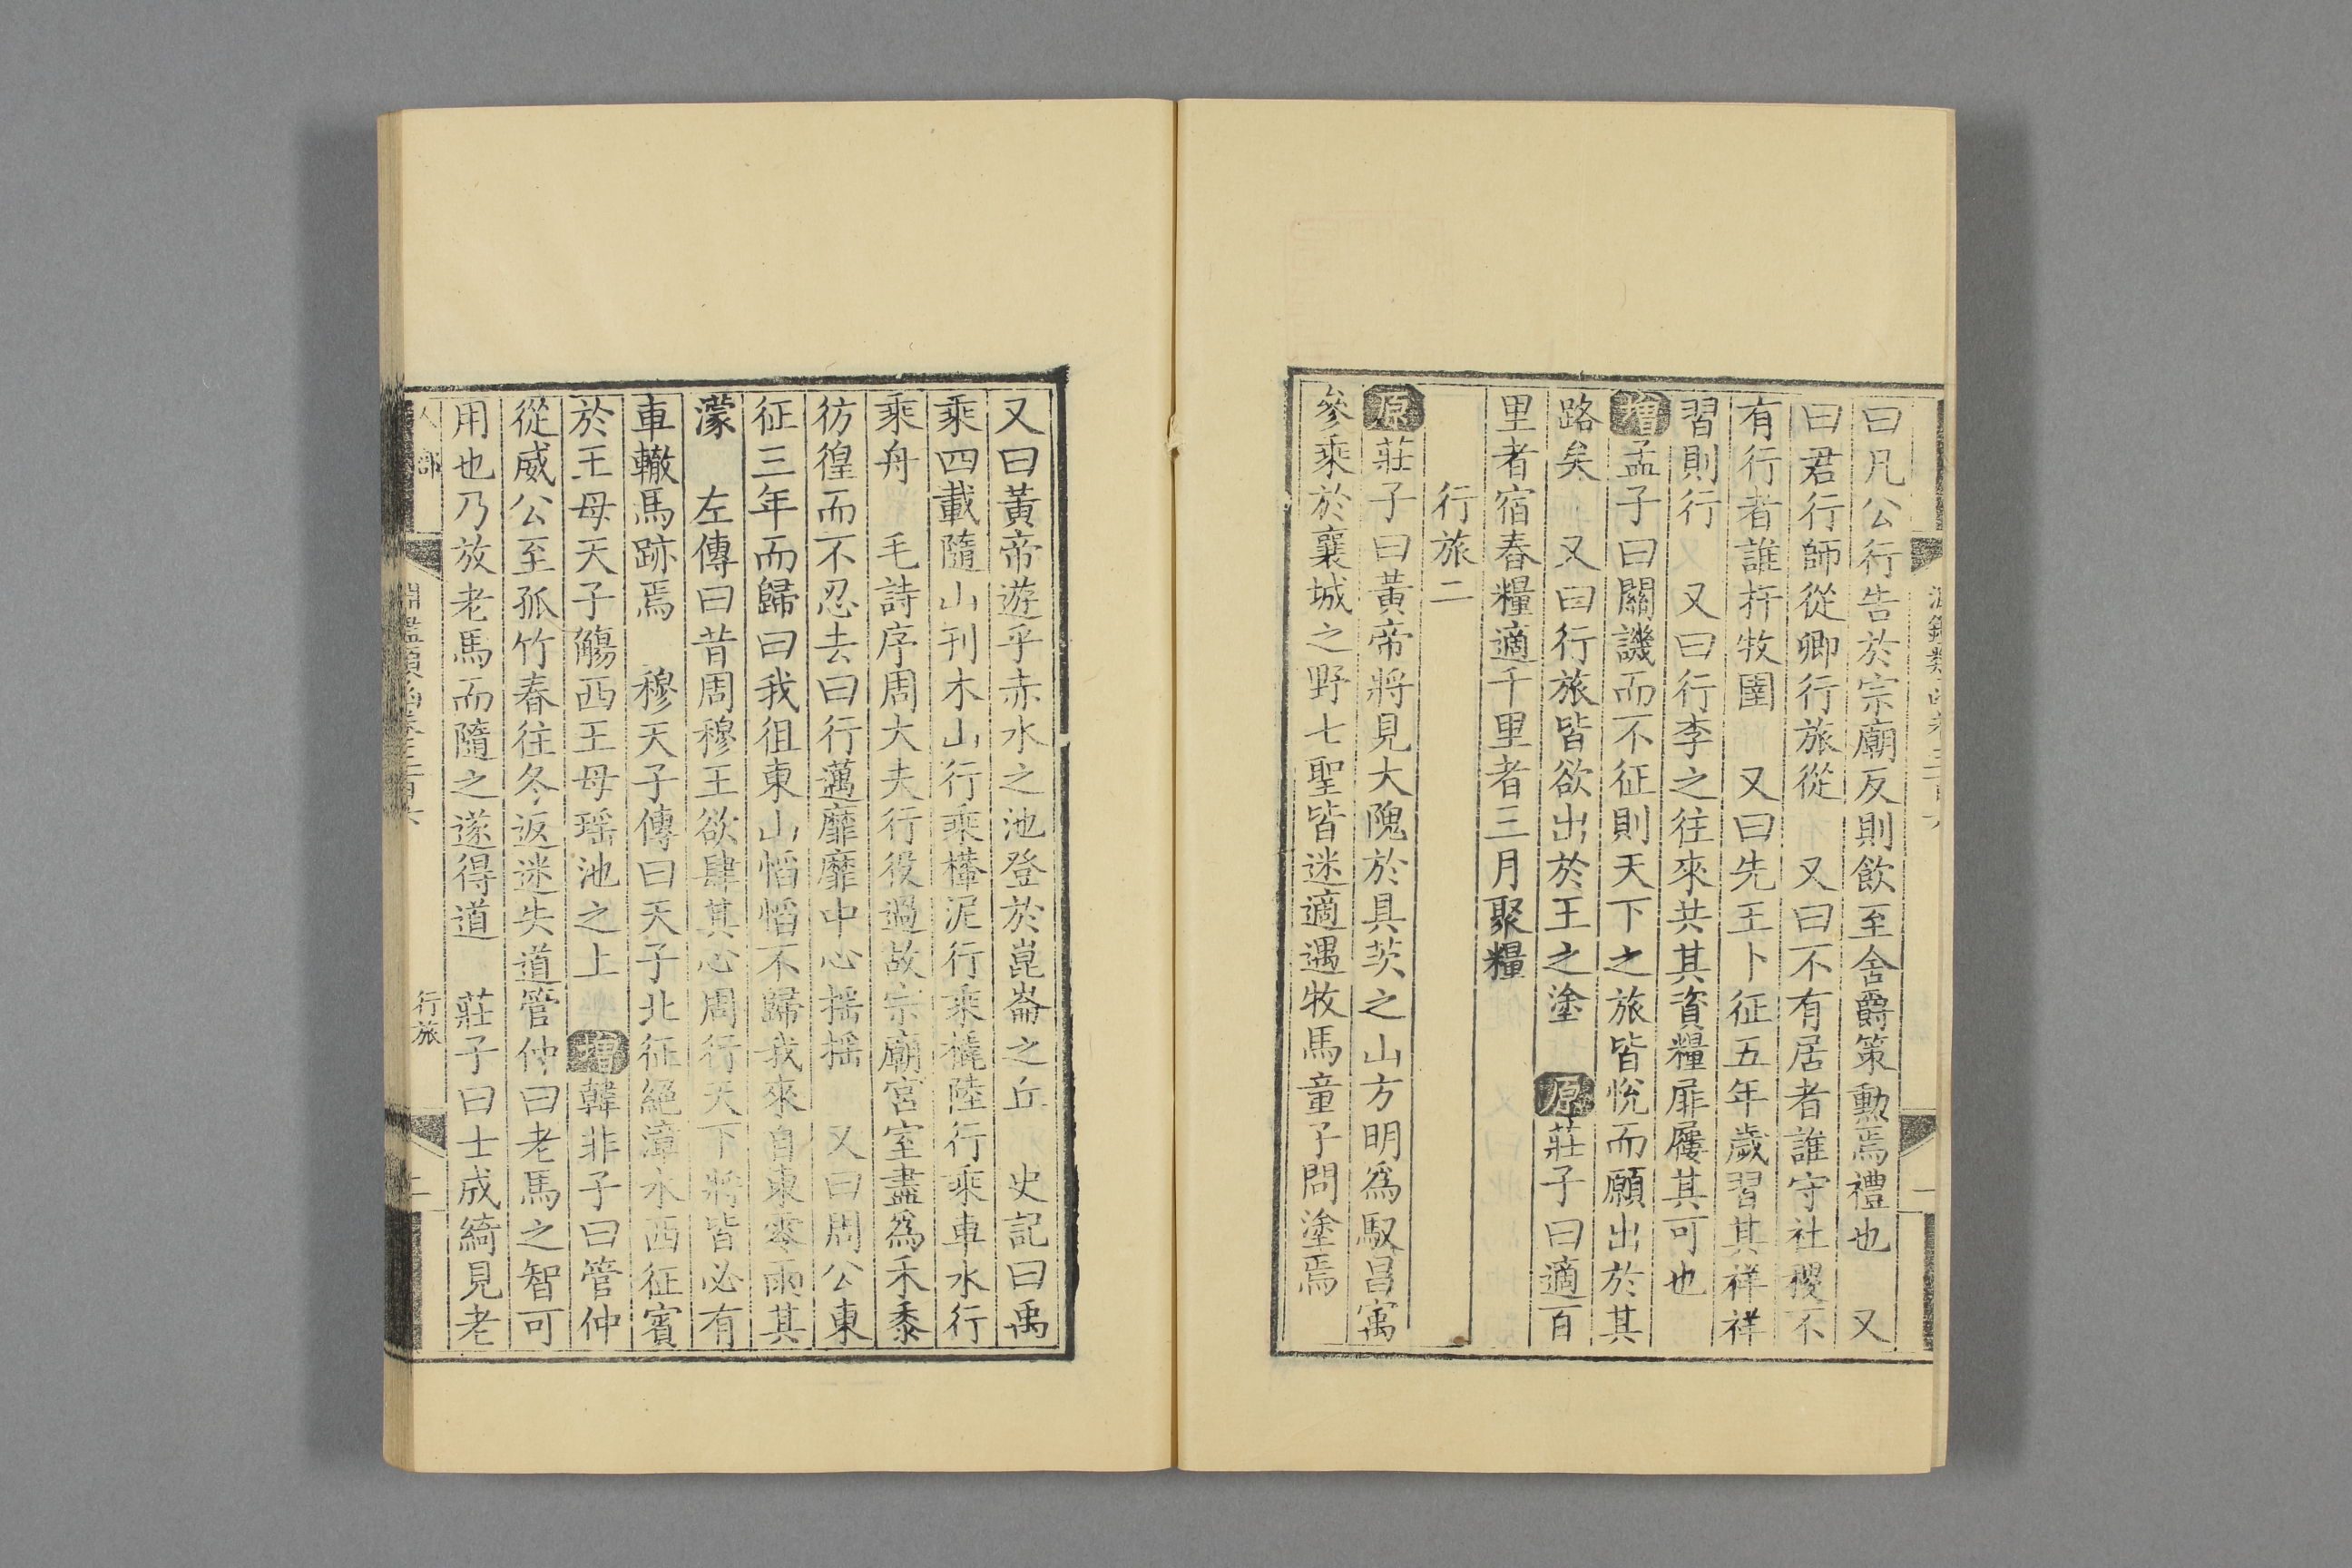 曰凡公行告於宗廟反則飲至舍爵策勳焉禮也　又
曰君行師從卿行旅從　又曰不有居者誰守社稷不
有行者誰扞牧圉　又曰先王卜征五年歲習其祥祥
習則行　又曰行李之往來共其資糧屝屨其可也
增孟子曰關譏而不征則天下之旅皆悅而願出於其
路矣　又曰行旅皆欲出於王之塗　原莊子曰適百
里者宿舂糧適千里者三月聚糧
行旅二
原莊子曰黃帝將見大隗於具茨之山方明爲馭昌㝢
參乘於襄城之野七聖皆迷適遇牧馬童子問塗焉
又曰黃帝遊乎赤水之池登於崑崙之丘　史記曰禹
乘四載隨山刊木山行乘檋泥行乘橇陸行乘車水行
乘舟　毛詩序周大夫行役過故宗廟宮室盡爲禾黍
彷徨而不忍去曰行邁靡靡中心摇摇　又曰周公東
征三年而歸曰我徂東山慆慆不歸我來自東零雨其
濛　左傳曰昔周穆王欲肆其心周行天下將皆必有
車轍馬跡焉　穆天子傳曰天子北征絕漳水西征賓
於王母天子觴西王母瑶池之上　增韓非子曰管仲
從威公至孤竹春往冬返迷失道管仲曰老馬之智可
用也乃放老馬而隨之遂得道　莊子曰士成綺見老
人部
淵鑑類函卷三百六
行旅
二